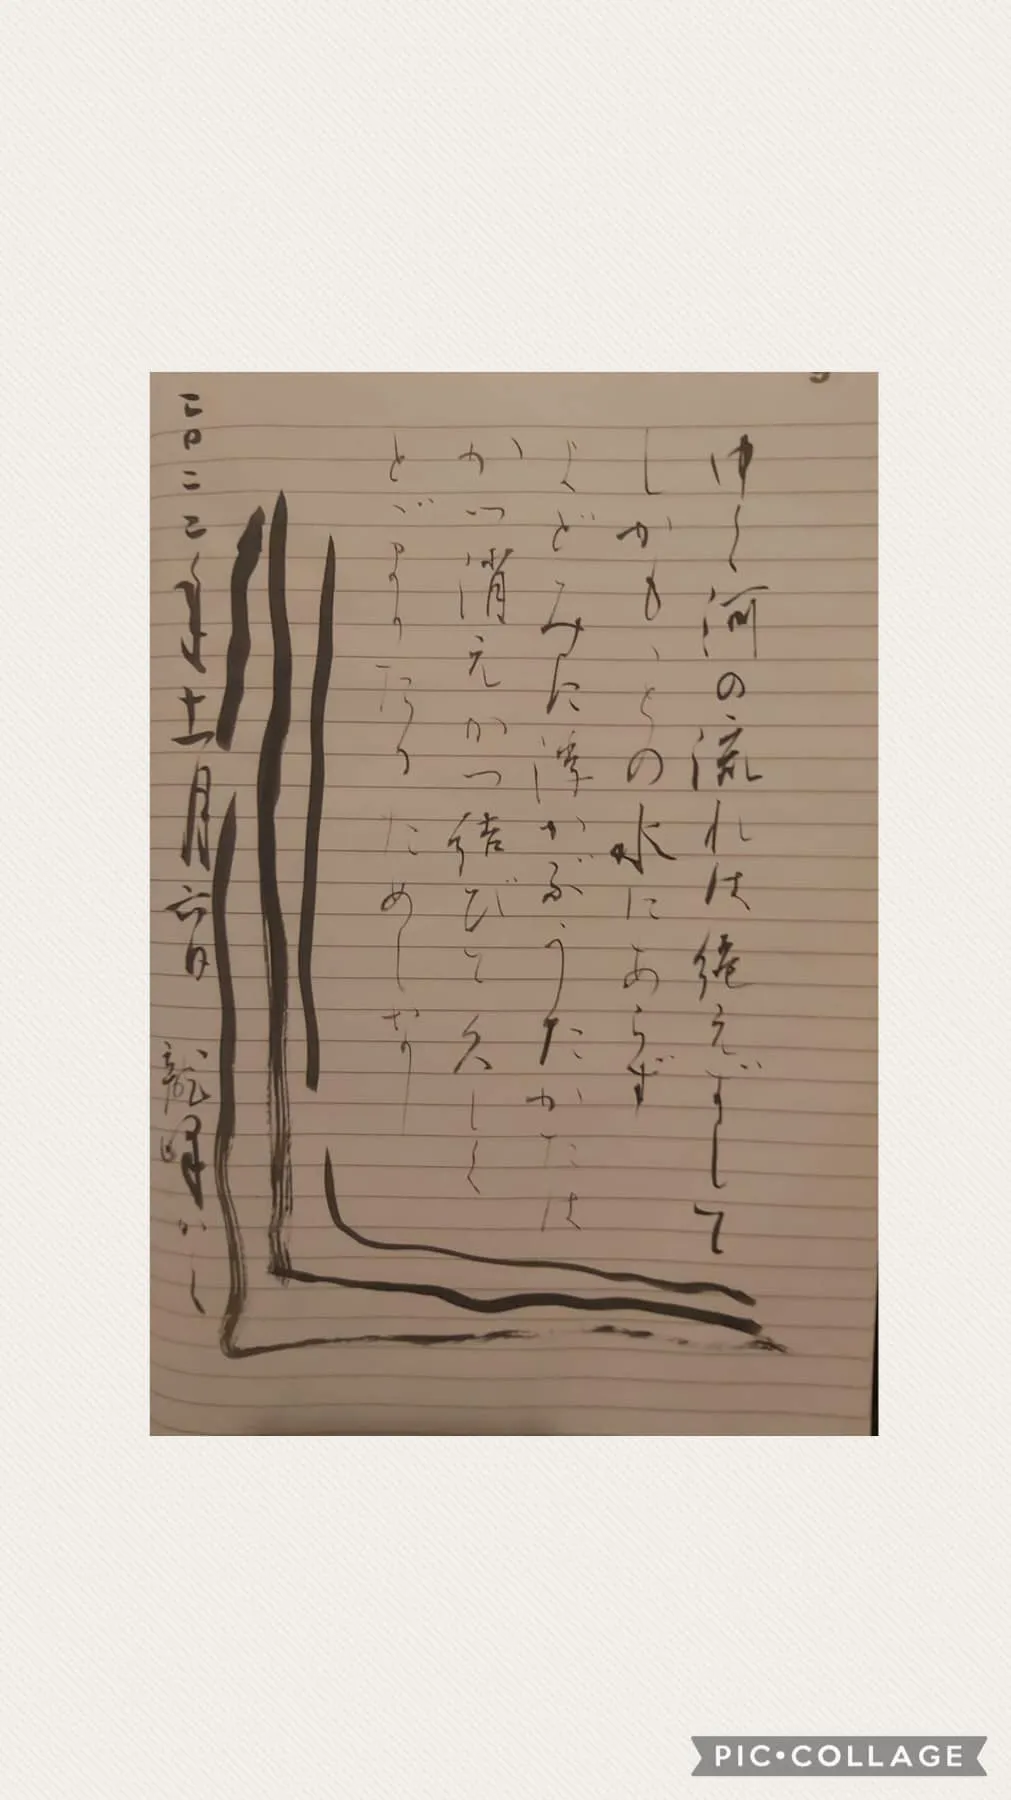 ゆく河の流れは絶えずして
しかもゝとの水にあらず
よどみに浮かぶうたかたは
かつ消えかつ結びて久しく
とゞまりたるためしなり
二〇二二年十一月六日 龍峰かく
PIC•COLLAGE